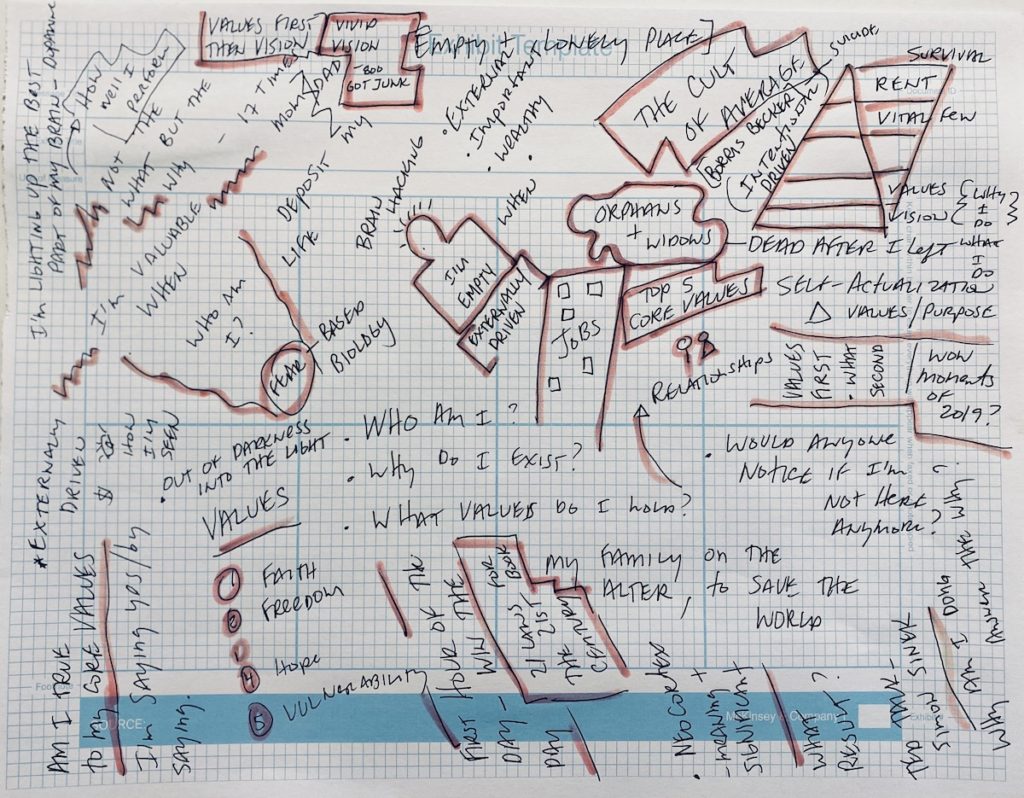 VALUES FIRST
THEN VISION
VIVID
VISION
-BOO
GOT JUNK
EMPTY + (LONELY PLACE]
Exhibit Template
I'm LIGHTING UP THE BEST
PART OF MY BRAIN-
HOW
WELL I
PERFORM
NOT THE
WHAT BUT THE
WHY
- 17 TIMES
MOM/DAD
MY
I'm
VALUABLE
WHEN
WHO AM
I?
LIFE DEPOSIT
BRAIN HACKING
• EXTERNAL
• IMPORTANT
• WEALTHY
WHEN
I'M
EMPTY
EXTERNALLY
DRIVEN
FEAR
- BASED
BIOLOGY
THE CULT
OF AVERAGE
SUICIDE
(BORRIS BECKER)
(INTENTION
DRIVEN
SURVIVAL
RENT
VITAL FEW
VALUES
VISION
{ WHY }
I
DO
WHAT
I
DO
ORPHANS
+ WIDOWS
- DEAD AFTER I LEFT
JOBS
TOP 5
CORE VALUES
RELATIONSHIPS
SELF-ACTUALIZATION
Δ VALUES/PURPOSE
VALUES
FIRST
• WHAT
SECOND
WOW
MOMENTS
OF
2019?
*EXTERNALLY
DRIVEN
HOW
I'M
SEEN
• OUT OF DARKNESS
INTO THE LIGHT
• WHO AM I?
• WHY DO I EXIST?
• WHAT VALUES DO I HOLD?
• WOULD ANYONE
NOTICE IF I'M
NOT HERE
ANYMORE?
VALUES
1 FAITH
FREEDOM
4 HOPE
5 VULNERABILITY
AM I TRUE
TO MY CORE VALUES
I'M SAYING YES/BY
SAYING
FIRST HOUR OF THE
WIN THE
DAY -
DAY
FOR
BOOK
21 LAWS
21ST
THE
CENTURY
MY FAMILY ON THE
ALTER, TO SAVE THE
WORLD
NEOCORTEX
- MEANING +
SIGNIFICANT
WHAT
RESULT?
TED TALK -
SIMON SINEK
WHY AM I DOING
ANSWER THE WHY?
SOURCE:
McKinsey & Company
Exhibit